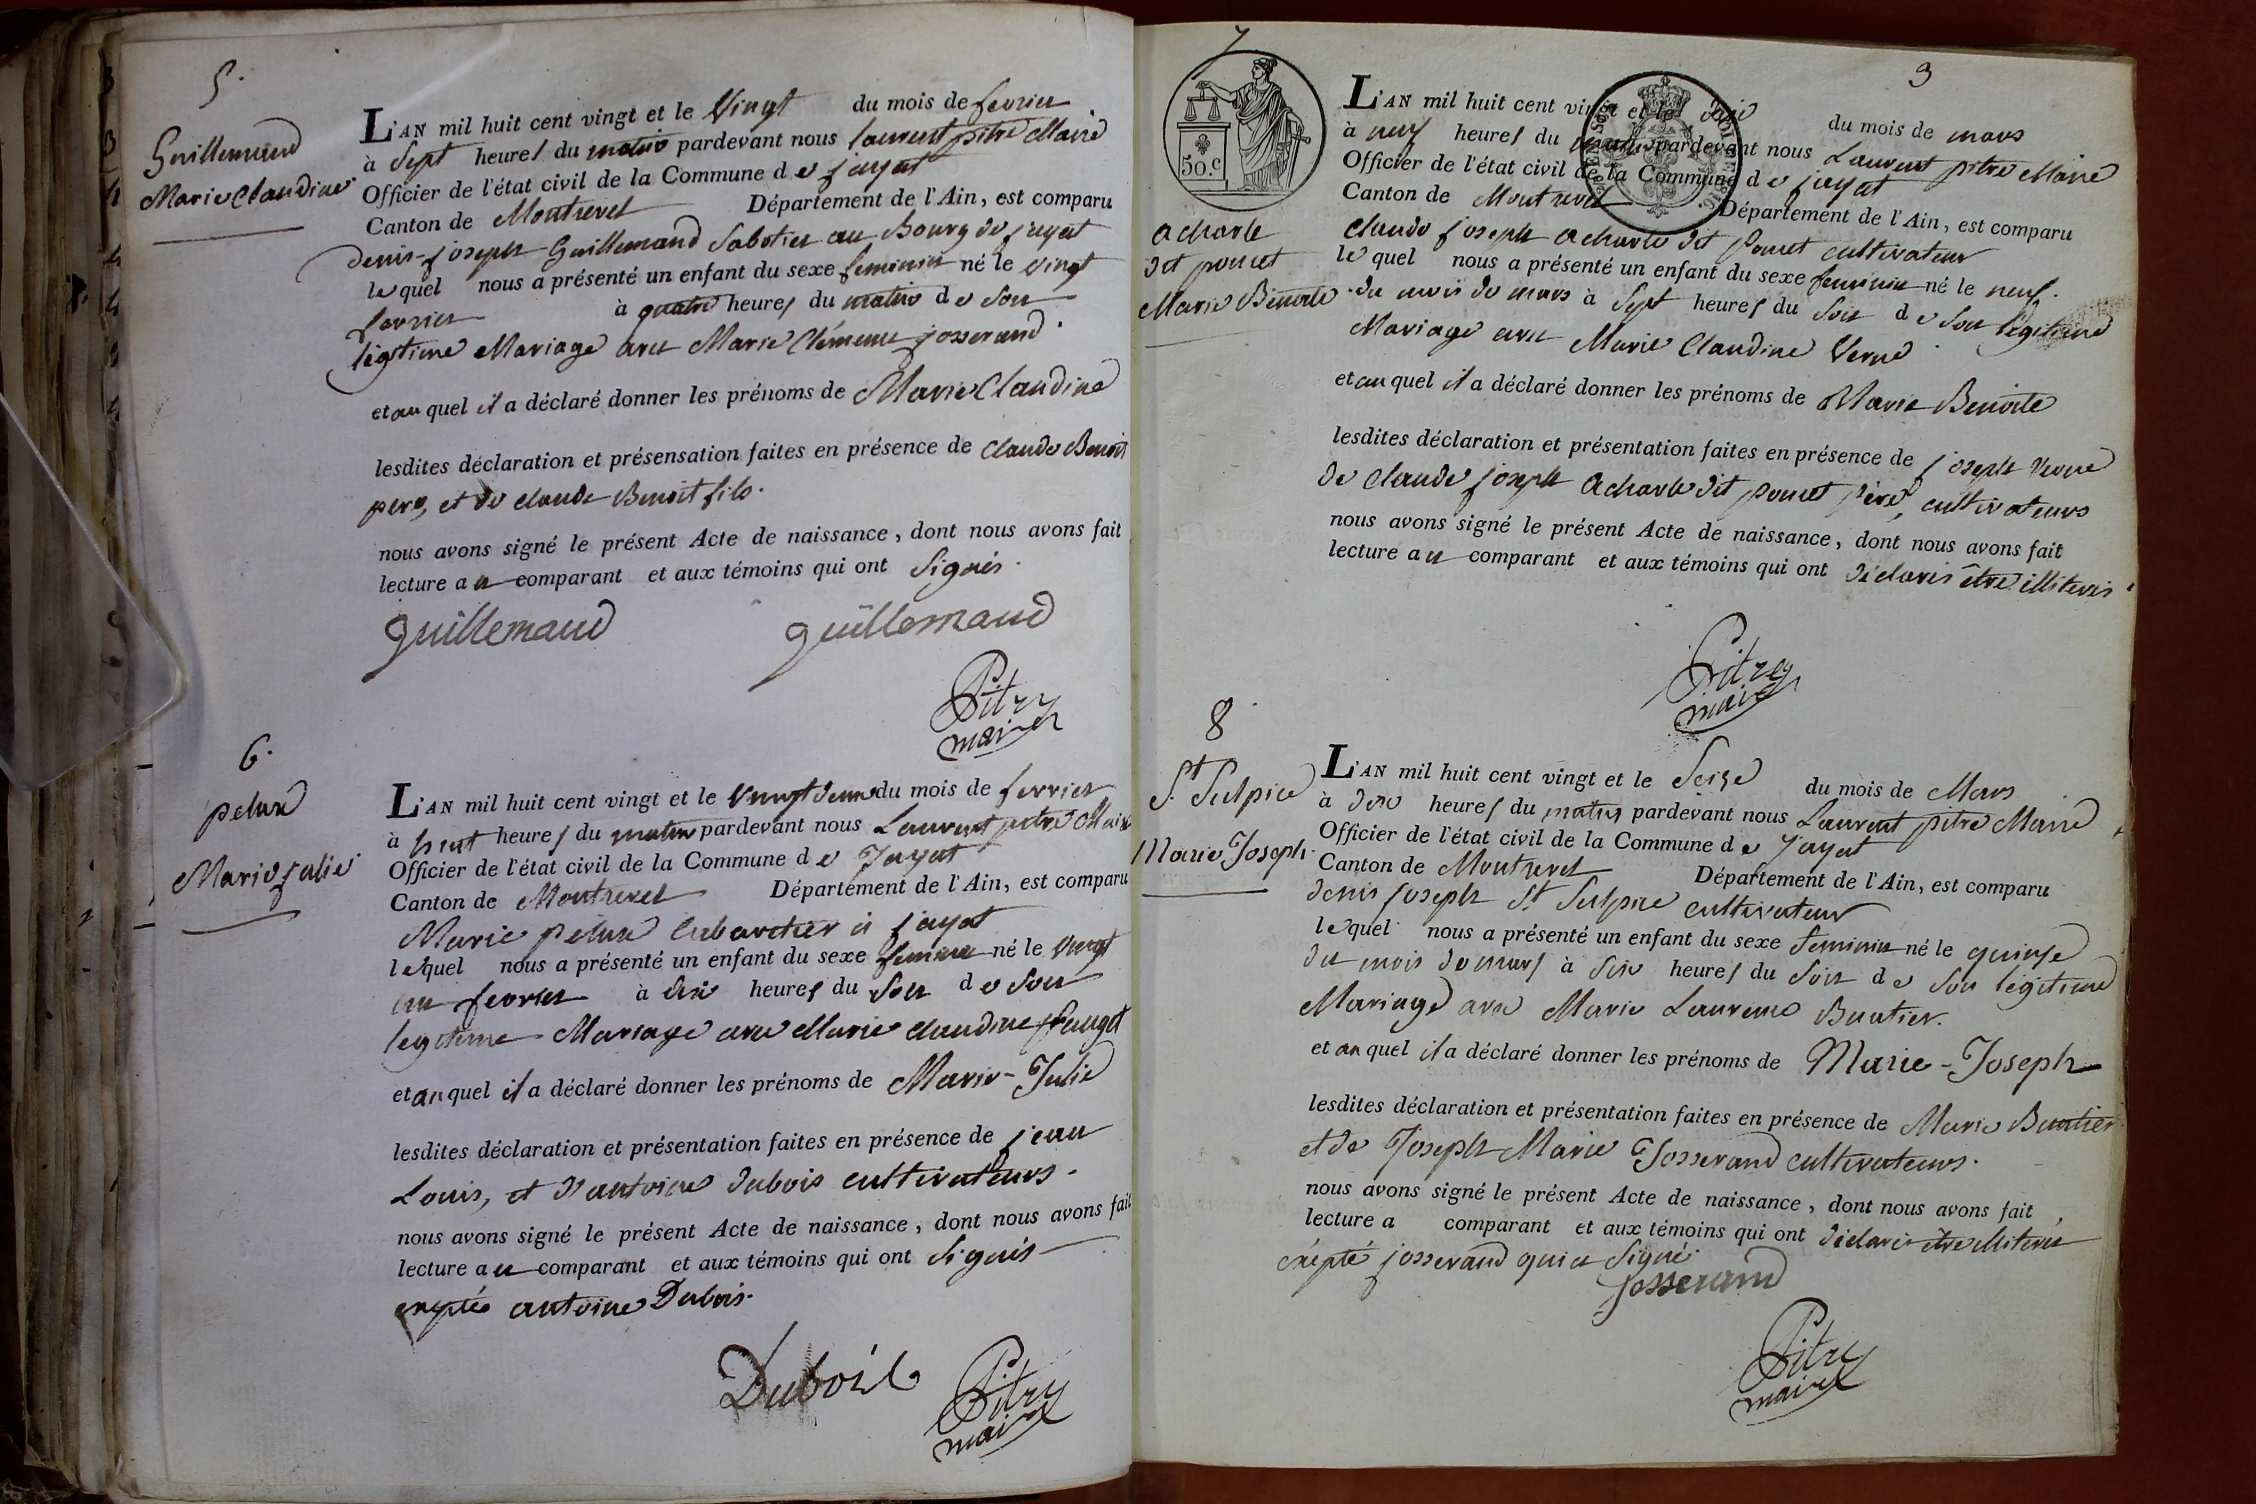 5.
Guillemaud
Marie Claudine
L'AN mil huit cent vingt et le Vingt du mois de fevrier
à Sept heures du matin pardevant nous laurent pitre Maire
Officier de l'état civil de la Commune de jayat
Canton de Montrevel Département de l'Ain, est comparu
denis-joseph Guillemaud Sabotier au Bourg de jayat
lequel nous a présenté un enfant du sexe feminin né le vingt
fevrier à quatre heures du matin de Son
légitime Mariage avec Marie Clémence josserand
et au quel il a déclaré donner les prénoms de Marie Claudine
lesdites déclaration et présensation faites en présence de Claude Benoit
pere, et de claude Benoit fils.
nous avons signé le présent Acte de naissance, dont nous avons fait
lecture au comparant et aux témoins qui ont Signés.
guillemaud guillemaud
Pitre
maire
6.
pelux
Marie julie
L'AN mil huit cent vingt et le Vingt deux du mois de fevrier
à huit heures du matin pardevant nous Laurent pitre Maire
Officier de l'état civil de la Commune de Jayat
Canton de Montrevel Département de l'Ain, est comparu
Marie pelux Cabaretier à jayat
lequel nous a présenté un enfant du sexe feminin né le Vingt
un fevrier à dix heures du Soir de Son
legitime Mariage avec Marie claudine
et au quel il a déclaré donner les prénoms de Marie-Julie
lesdites déclaration et présentation faites en présence de jean
Louis, et d'antoine dubois cultivateurs.
nous avons signé le présent Acte de naissance, dont nous avons fait
lecture au comparant et aux témoins qui ont Signés
exeptée antoine Dubois.
Dubois
Pitre
maire
7
3
50.c
L'AN mil huit cent vingt et le du mois de mars
à neuf heures du matin pardevant nous Laurent pitre Maire
Officier de l'état civil de la Commune de jayat
Canton de Montrevel Département de l'Ain, est comparu
acharle
dit poncet
Marie Benoite
Claude joseph acharle dit poncet cultivateur
lequel nous a présenté un enfant du sexe feminin né le neuf
du mois de mars à Sept heures du Soir de Son légitime
Mariage avec Marie Claudine Verne
et au quel il a déclaré donner les prénoms de Marie Benoite
lesdites déclaration et présentation faites en présence de joseph Verne
de Claude joseph acharle dit poncet père, cultivateurs
nous avons signé le présent Acte de naissance, dont nous avons fait
lecture au comparant et aux témoins qui ont déclarés être illiterés
Pitre
maire
8
St. Sulpice
Marie Joseph
L'AN mil huit cent vingt et le Seize du mois de Mars
à dix heures du matin pardevant nous Laurent pitre Maire
Officier de l'état civil de la Commune de Jayat
Canton de Montrevel Département de l'Ain, est comparu
denis joseph St. Sulpice cultivateur
lequel nous a présenté un enfant du sexe feminin né le quinze
du mois de mars à Six heures du Soir de Son légitime
Mariage avec Marie Laurence Buatier.
et au quel il a déclaré donner les prénoms de Marie-Joseph
lesdites déclaration et présentation faites en présence de Marie Buatier
et de Joseph Marie Josserand cultivateurs.
nous avons signé le présent Acte de naissance, dont nous avons fait
lecture a comparant et aux témoins qui ont déclarés être illiterés
exepté josserand qui a Signé.
josserand
Pitre
maire